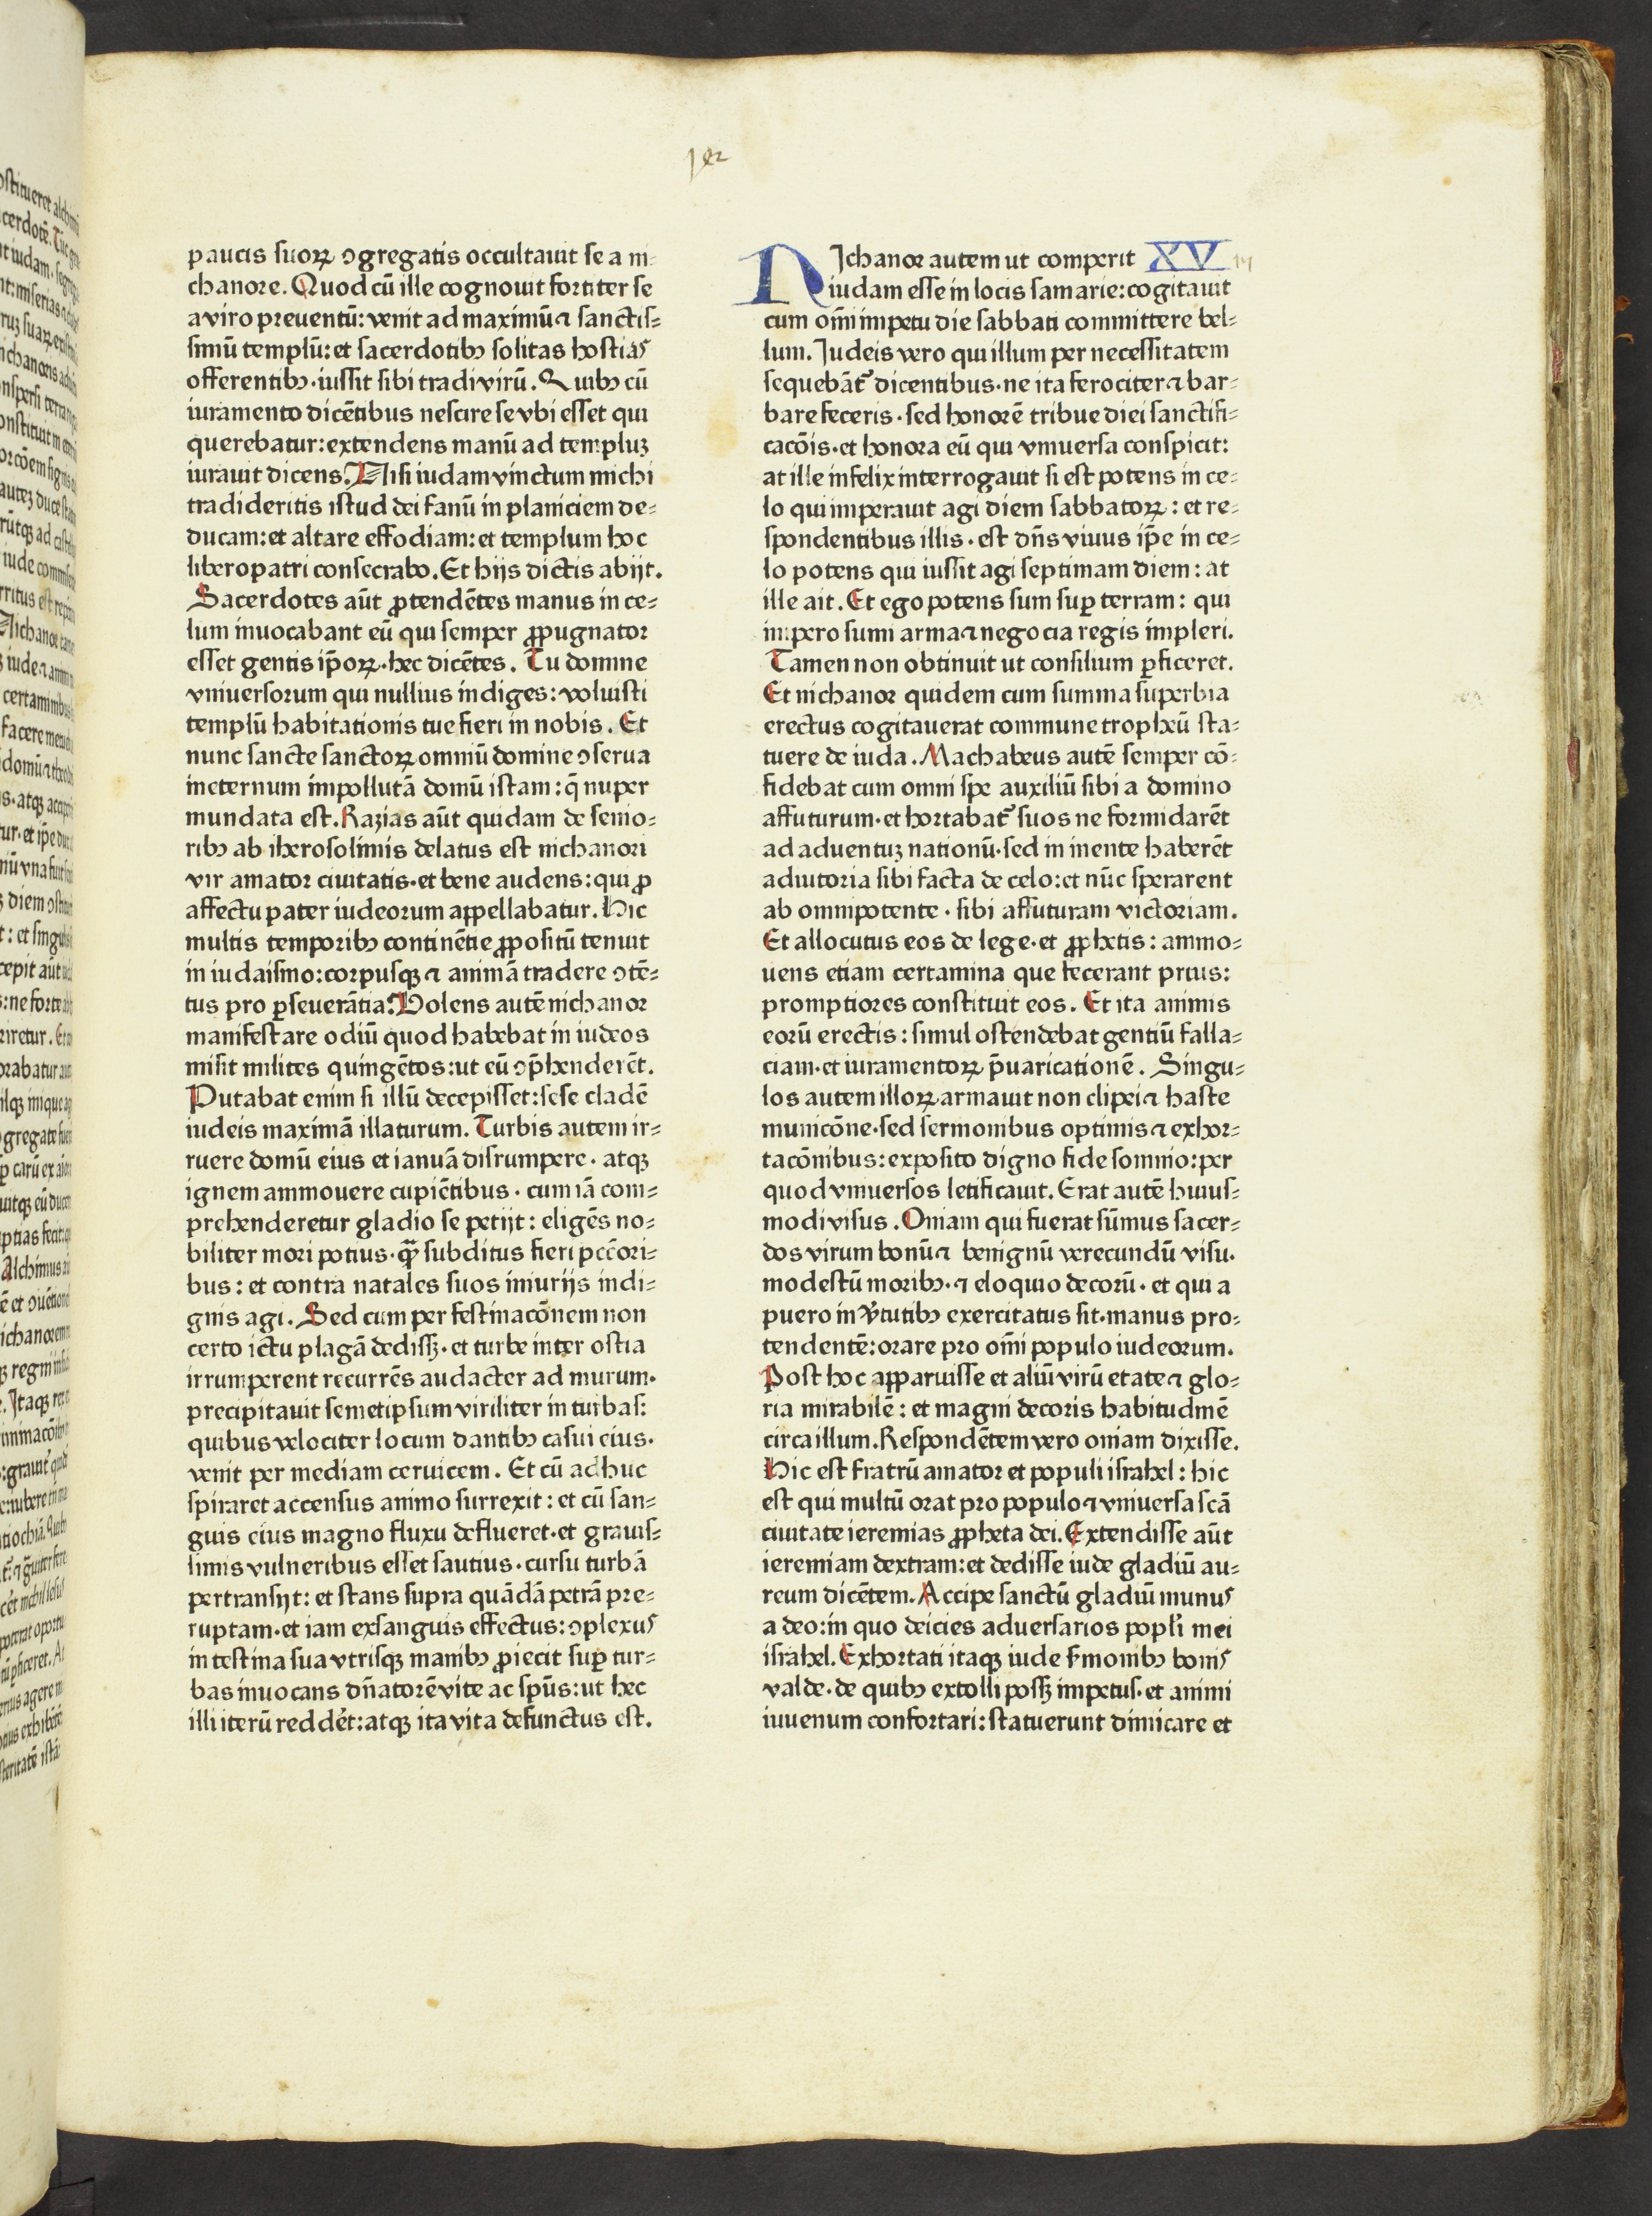 paucis suoꝝ ↄgregatis occultauit se a ni⸗
chanore. Quod cū ille cognouit fortiter se
a viro preuentū: venit ad maximū ⁊ sanctis⸗
simū templū: et sacerdotibꝰ solitas hostias
offerentibꝰ· iussit sibi tradi virū. Quibꝰ cū
iuramento dicētibus nescire se vbi esset qui
querebatur: extendens manū ad templuꝫ
iurauit dicens. Nisi iudam vinctum michi
tradideritis istud dei fanū in planiciem de⸗
ducam: et altare effodiam: et templum hoc
libero patri consecrabo. Et hijs dictis abijt.
Sacerdotes aūt ꝓtendētes manus in ce⸗
lum inuocabant eū qui semper ꝓpugnator
esset gentis ip̄oꝝ· hec dicētes. Tu domine
vniuersorum qui nullius indiges: voluisti
templū habitationis tue fieri in nobis. Et
nunc sancte sanctoꝝ omniū domine ↄserua
in eternum impollutā domū istam: q̄ nuper
mundata est. Razias aūt quidam de senio⸗
ribꝰ ab iherosolimis delatus est nichanori
vir amator ciuitatis· et bene audens: qui ꝓ
affectu pater iudeorum appellabatur. Hic
multis temporibꝰ continētie ꝓpositū tenuit
in iudaismo: corpusqꝫ ⁊ animā tradere ↄtē⸗
tus pro ꝑseuerātia. Volens autē nichanor
manifestare odiū quod habebat in iudeos
misit milites quingētos: ut eū ↄp̄henderēt.
Putabat enim si illū decepisset: sese cladē
iudeis maximā illaturum. Turbis autem ir⸗
ruere domū eius et ianuā disrumpere· atqꝫ
ignem ammouere cupiētibus· cum iā com⸗
prehenderetur gladio se petijt: eligēs no⸗
biliter mori potius· qꝫ̄ subditus fieri pccōri⸗
bus: et contra natales suos iniurijs indi⸗
gnis agi. Sed cum per festinacōnem non
certo ictu plagā dedissꝫ· et turbe inter ostia
irrumperent recurrēs audacter ad murum·
precipitauit semetipsum viriliter in turbas:
quibus velociter locum dantibꝰ casui eius·
venit per mediam ceruicem. Et cū adhuc
spiraret accensus animo surrexit: et cū san⸗
guis eius magno fluxu deflueret· et grauis⸗
simis vulneribus esset sautius· cursu turbā
pertransijt: et stans supra quādā petrā pre⸗
ruptam· et iam exsanguis effectus: ↄplexus
intestina sua vtrisqꝫ manibꝰ ꝓiecit suꝑ tur⸗
bas inuocans dn̄atorē vite ac spūs: ut hec
illi iterū reddēt: atqꝫ ita vita defunctus est.
NIchanor autem ut comperit XV
iudam esse in locis samarie: cogitauit
cum om̄i impetu die sabbati committere bel⸗
lum. Iudeis vero qui illum per necessitatem
sequebāt᷑ dicentibus· ne ita ferociter ⁊ bar⸗
bare feceris· sed honorē tribue diei sanctifi⸗
cacōis· et honora eū qui vniuersa conspicit:
at ille infelix interrogauit si est potens in ce⸗
lo qui imperauit agi diem sabbatoꝝ: et re⸗
spondentibus illis· est dn̄s viuus ip̄e in ce⸗
lo potens qui iussit agi septimam diem: at
ille ait. Et ego potens sum suꝑ terram: qui
impero sumi arma ⁊ negocia regis impleri.
Tamen non obtinuit ut consilium ꝑficeret.
Et nichanor quidem cum summa superbia
erectus cogitauerat commune tropheū sta⸗
tuere de iuda. Machabeus autē semper cō⸗
fidebat cum omni spe auxiliū sibi a domino
affuturum· et hortabat᷑ suos ne formidarēt
ad aduentuꝫ nationū· sed in mente haberēt
adiutoria sibi facta de celo: et nūc sperarent
ab omnipotente· sibi affuturam victoriam.
Et allocutus eos de lege· et ꝓphetis: ammo⸗
uens etiam certamina que fecerant prius:
promptiores constituit eos. Et ita animis
eorū erectis: simul ostendebat gentiū falla⸗
ciam· et iuramentoꝝ p̄uaricationē. Singu⸗
los autem illoꝝ armauit non clipei ⁊ haste
municōne· sed sermonibus optimis ⁊ exhor⸗
tacōnibus: exposito digno fide somnio: per
quod vniuersos letificauit. Erat autē huius⸗
modi visus. Oniam qui fuerat sūmus sacer⸗
dos virum bonū ⁊ benignū verecundū visu·
modestū moribꝰ· ⁊ eloquio decorū· et qui a
puero in v̄tutibꝰ exercitatus sit· manus pro⸗
tendentē: orare pro om̄i populo iudeorum.
Post hoc apparuisse et aliū virū etate ⁊ glo⸗
ria mirabilē: et magni decoris habitudinē
circa illum. Respondētem vero oniam dixisse.
Hic est fratrū amator et populi israhel: hic
est qui multū orat pro populo ⁊ vniuersa scā
ciuitate ieremias ꝓpheta dei. Extendisse aūt
ieremiam dextram: et dedisse iude gladiū au⸗
reum dicētem. Accipe sanctū gladiū munus
a deo: in quo deicies aduersarios popl̓i mei
israhel. Exhortati itaqꝫ iude s̄monibꝰ bonis
valde· de quibꝰ extolli possꝫ impetus· et animi
iuuenum confortari: statuerunt dimicare et